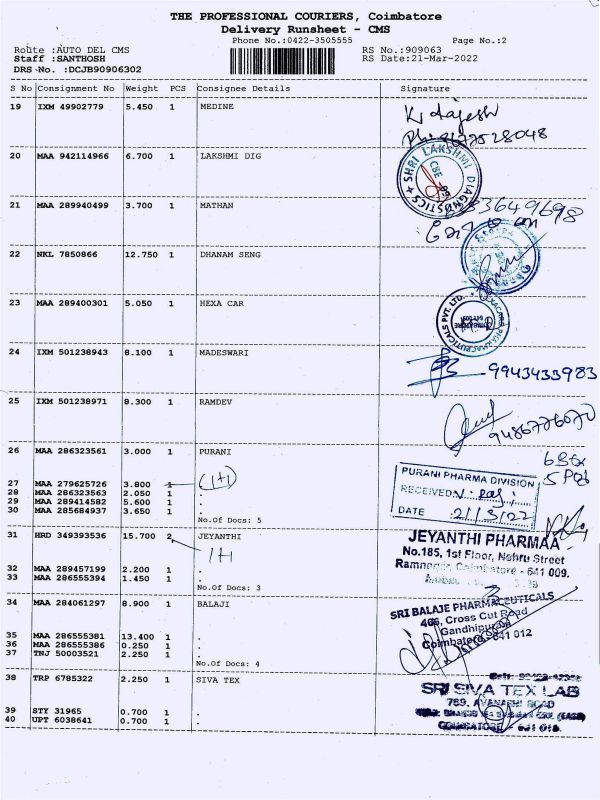 THE PROFESSIONAL COURIERS, Coimbatore
Delivery Runsheet - CMS
Phone No.:0422-3505555 Page No.:2
Route :AUTO DEL CMS RS No.:909063
Staff :SANTHOSH RS Date:21-Mar-2022
DRS No. :DCJB90906302
S No Consignment No Weight PCS Consignee Details Signature
19 IXM 49902779 5.450 1 MEDINE
20 MAA 942114966 6.700 1 LAKSHMI DIG
SHRI LAKSHMI DIAGNOSTICS CBE
21 MAA 289940499 3.700 1 MATHAN
22 NKL 7850866 12.750 1 DHANAM SENG
23 MAA 289400301 5.050 1 HEXA CAR
24 IXM 501238943 8.100 1 MADESWARI
9943433983
25 IXM 501238971 8.300 1 RAMDEV
26 MAA 286323561 3.000 1 PURANI
27 MAA 279625726 3.800 1 .
(1+1)
28 MAA 286323563 2.050 1 .
29 MAA 289414582 5.600 1 .
30 MAA 285684937 3.650 1 .
No.Of Docs: 5
PURANI PHARMA DIVISION
RECEIVED
DATE 21/3/22
31 HRD 349393536 15.700 2 JEYANTHI
1+1
32 MAA 289457199 2.200 1 .
33 MAA 286555394 1.450 1 .
No.Of Docs: 3
JEYANTHI PHARMAA
No.185, 1st Floor, Nehru Street
Ramnagar, Coimbatore - 641 009.
34 MAA 284061297 8.900 1 BALAJI
35 MAA 286555381 13.400 1 .
36 MAA 286555386 0.250 1 .
37 TNJ 50003521 2.250 1 .
No.Of Docs: 4
SRI BALAJE PHARMACEUTICALS
466, Cross Cut Road
Gandhipuram
Coimbatore - 641 012
38 TRP 6785322 2.250 1 SIVA TEX
39 STY 31965 0.700 1 .
40 UPT 6038641 0.700 1 .
SRI SIVA TEX LAB
789, AVANASHI ROAD
COIMBATORE - 641 018.